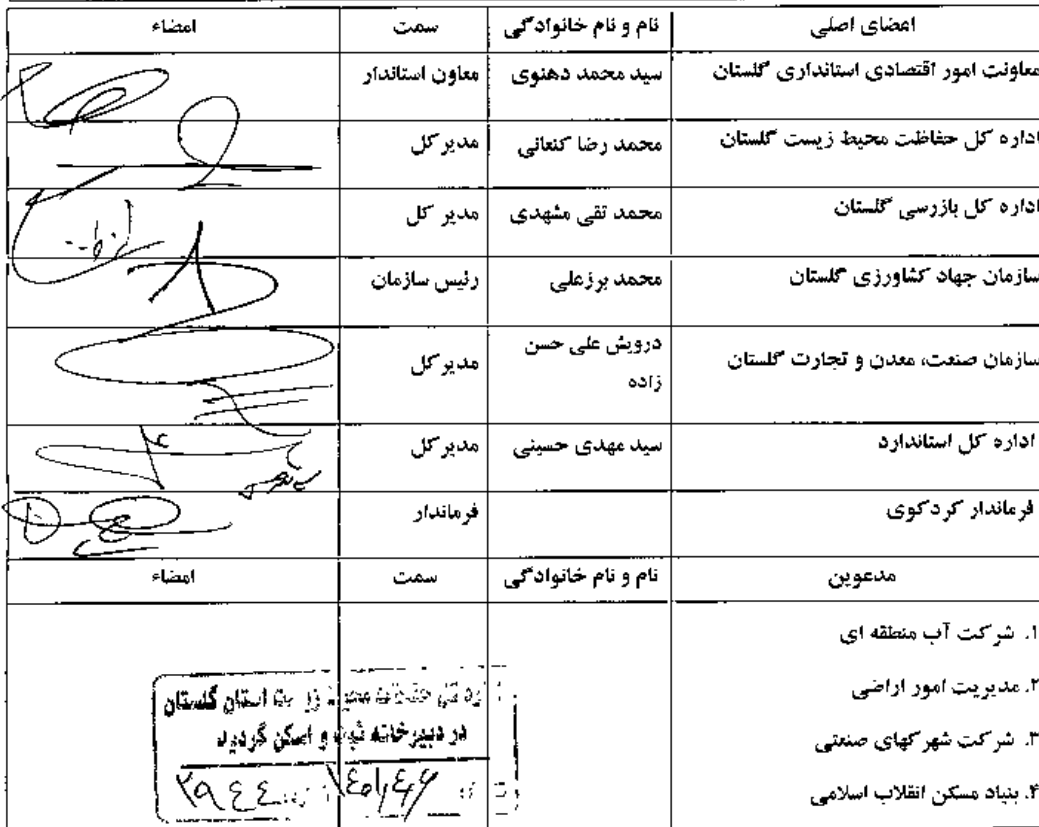 اعضای اصلی نام و نام خانوادگی سمت امضاء
معاونت امور اقتصادی استانداری گلستان سید محمد دهنوی معاون استاندار
اداره کل حفاظت محیط زیست گلستان محمد رضا کنعانی مدیر کل
اداره کل بازرسی گلستان محمد تقی مشهدی مدیر کل
سازمان جهاد کشاورزی گلستان محمد برزعلی رئیس سازمان
سازمان صنعت، معدن و تجارت گلستان درویش علی حسن زاده مدیر کل
اداره کل استاندارد سید مهدی حسینی مدیر کل
فرماندار کردکوی فرماندار
مدعوین نام و نام خانوادگی سمت امضاء
۱. شرکت آب منطقه ای
۲. مدیریت امور اراضی
۳. شرکت شهرکهای صنعتی
۴. بنیاد مسکن انقلاب اسلامی
استان گلستان
در دبیرخانه ثبت و اسکن گردید